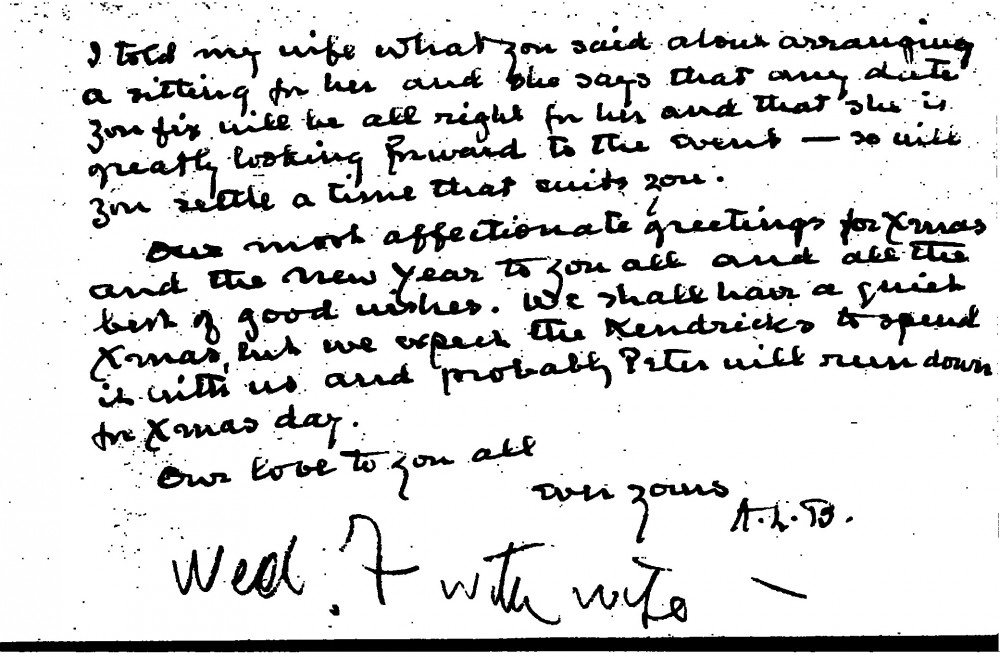 I told my wife what you said about arranging
a sitting for her and she says that any date
you fix will be all right for her and that she is
greatly looking forward to the event — so will
you settle a time that suits you.
Our most affectionate greetings for Xmas
and the New Year to you all and all the
best of good wishes. We shall have a quiet
Xmas, but we expect the Kendricks to spend
it with us and probably Peter will run down
for Xmas day.
Our love to you all
Ever yours
A.L.B.
Wed. 7 with wife —